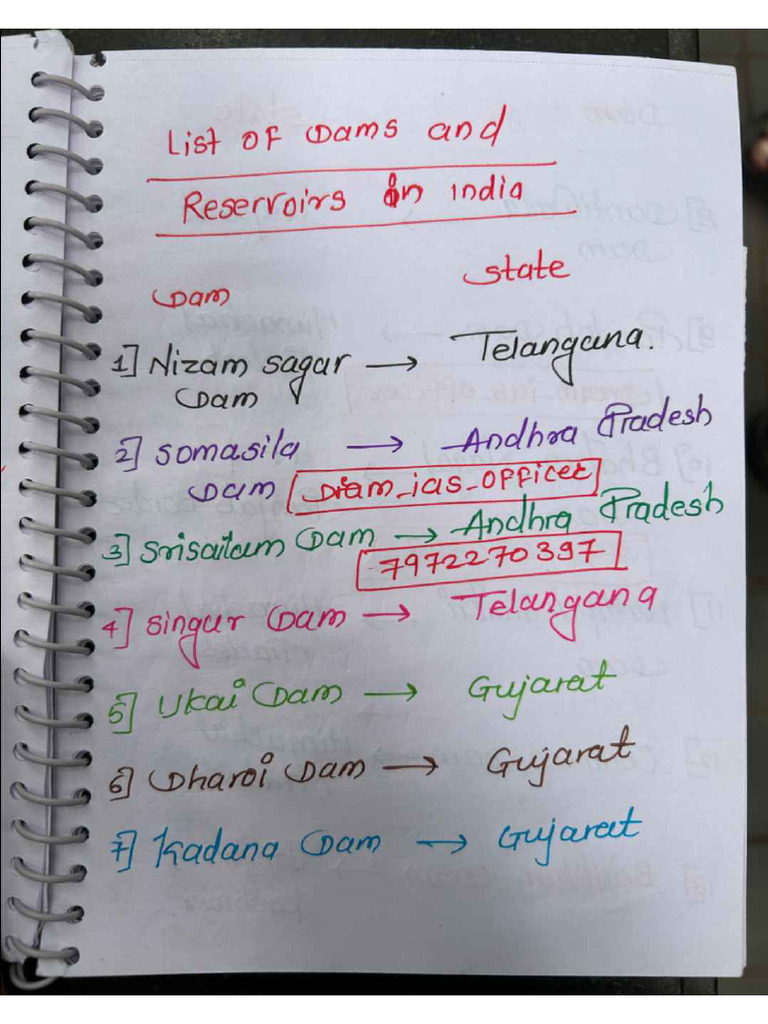 List of Dams and
Reservoirs in india
Dam state
1] Nizam sagar → Telangana.
Dam
2] Somasila → Andhra Pradesh
Dam
3] Srisailam Dam → Andhra Pradesh
7972270397
4] Singur Dam → Telangana
5] Ukai Dam → Gujarat
6] Dharoi Dam → Gujarat
7] Kadana Dam → Gujarat